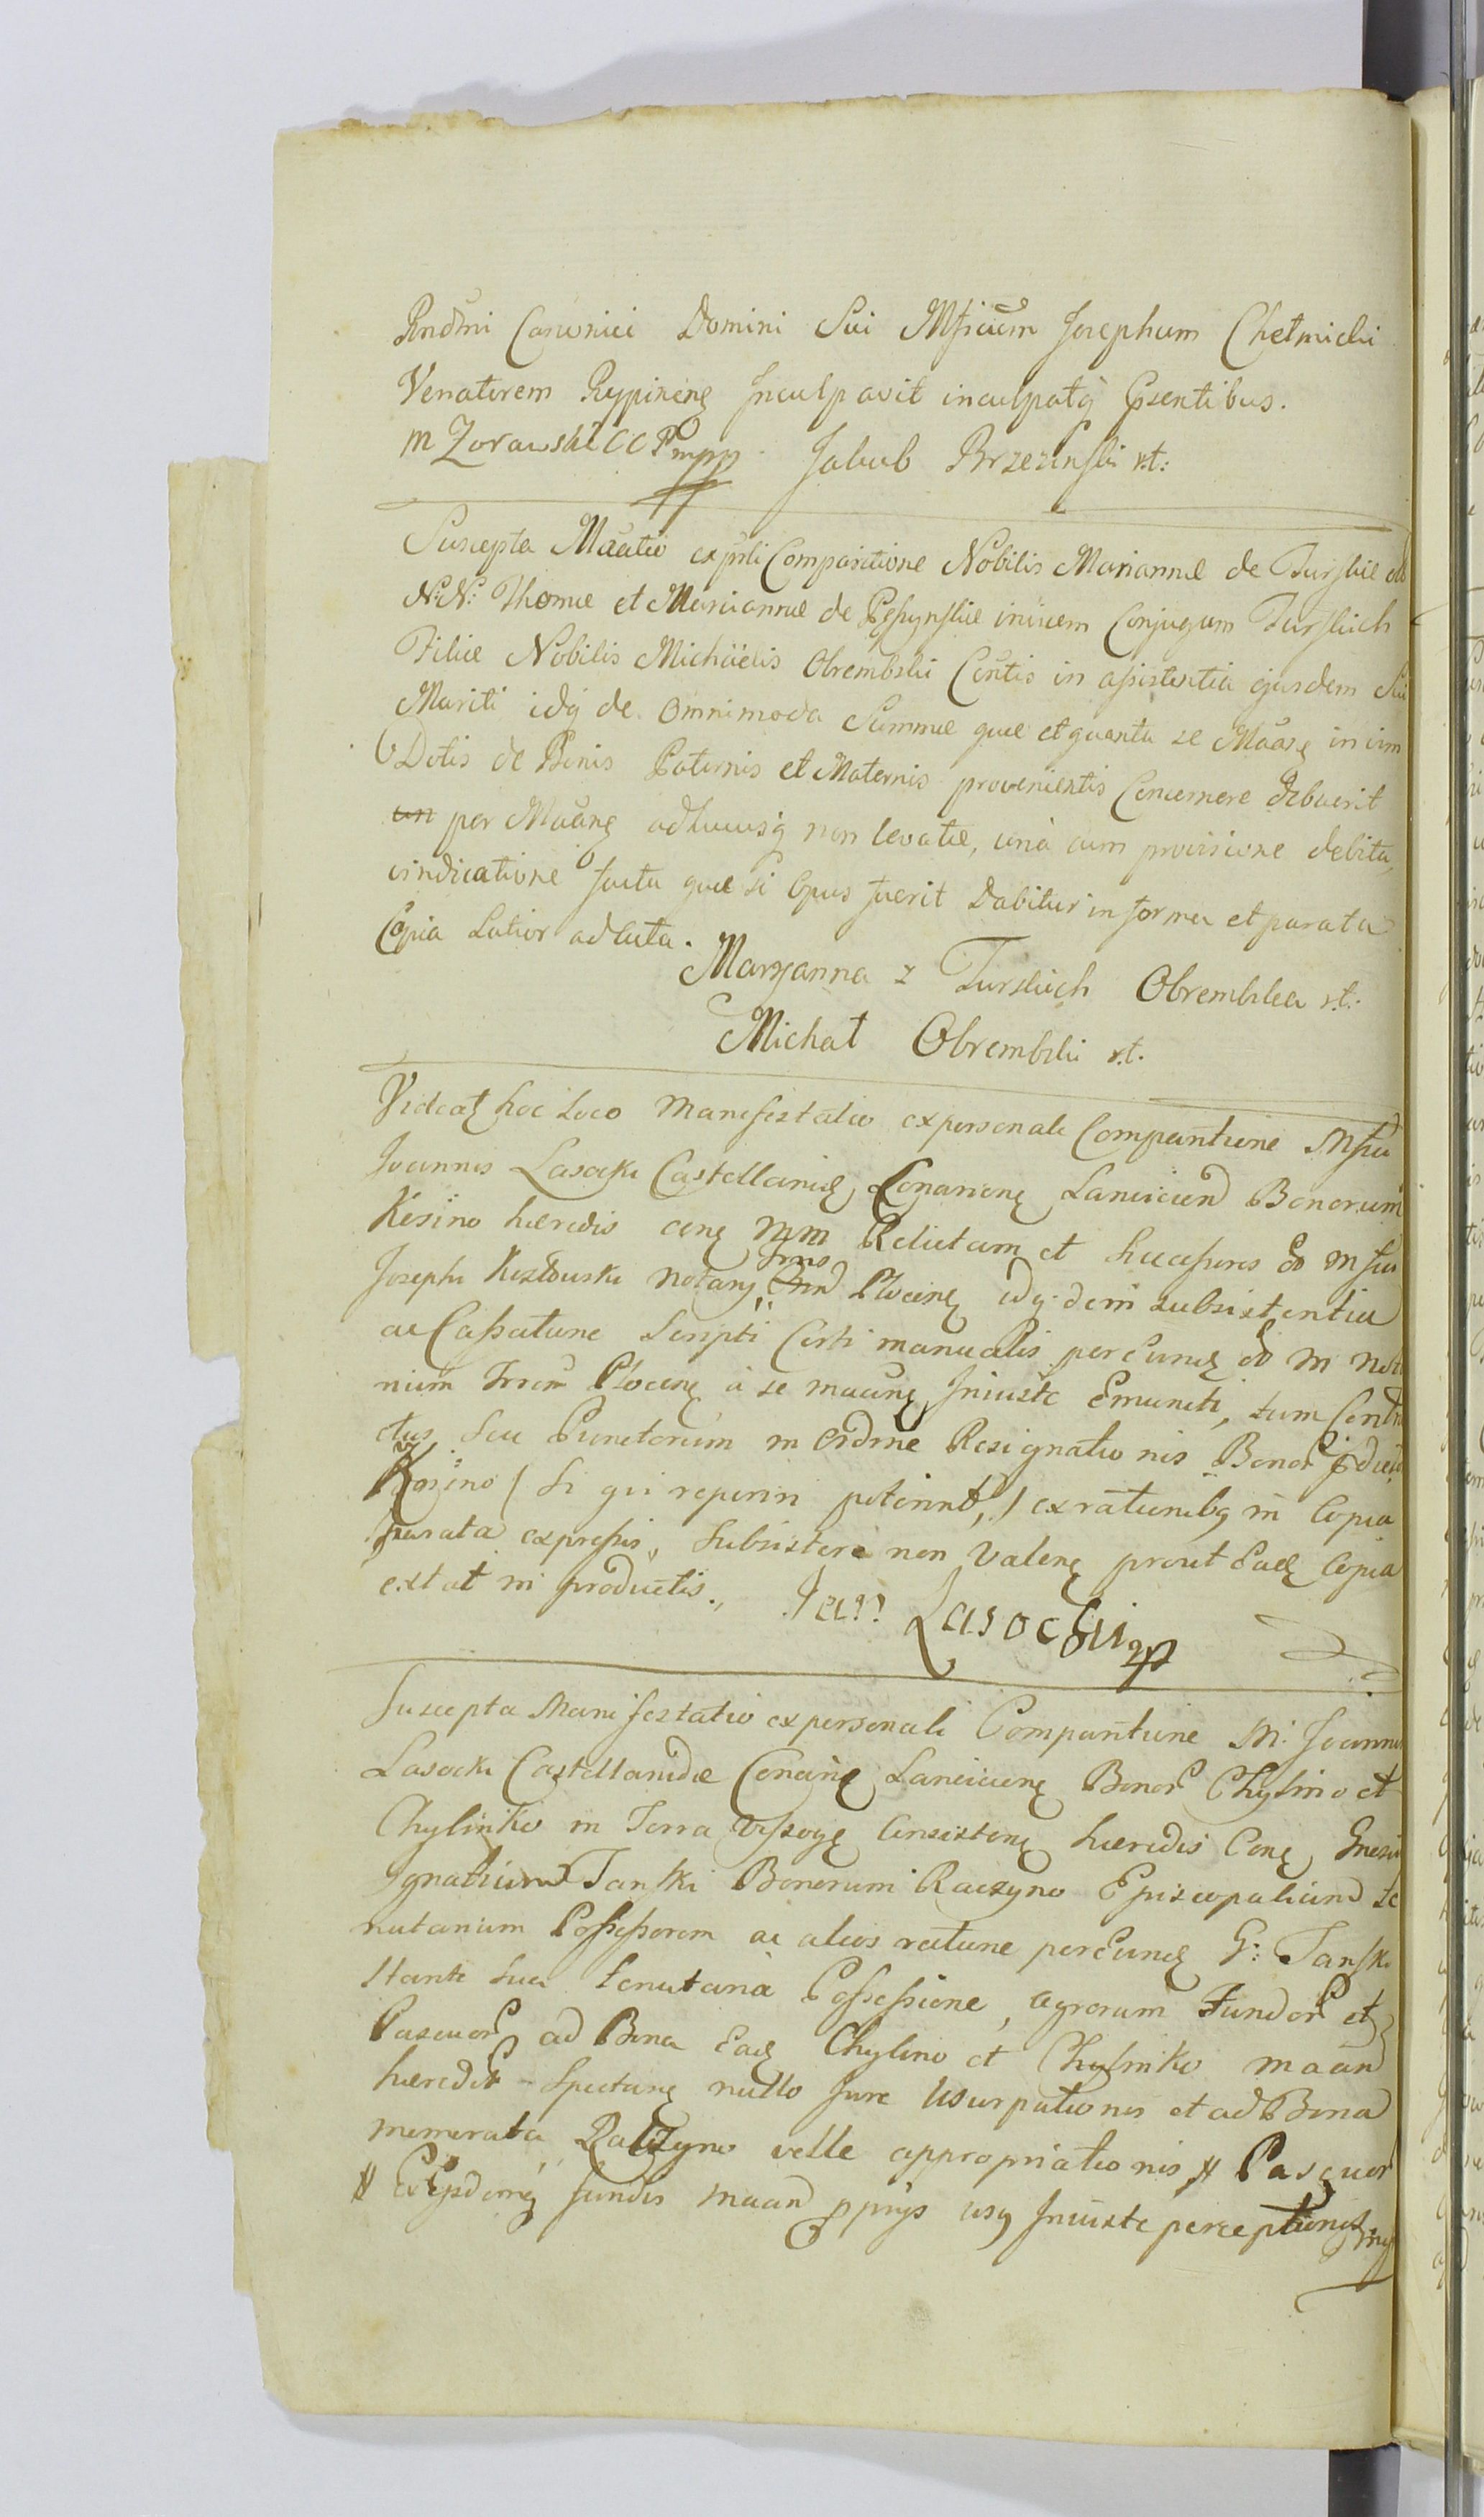 Rndmi Canonici Domini Sui Mficum Josephum Chełmicki
Venatorem Rypinens Inculpavit inculpatq psentibus.
M Zorawski CCP mpp Jakub Brzezinski rt:
Suscepta Maatio exprli Comparitione Nobilis Mariannæ de Turskie olo
N:N: Thomæ et Mariannæ de invicem Conjugum Turskich
Filiæ Nobilis Michäelis Obrembski Contis in assistentia ejusdem Sui
Mariti idq de omnimoda Summæ quæ et quanta se Maans in vim
Dotis de Bonis Paternis et Maternis provenientis Concernere debuerit
per Maans adhucusq non levatæ, unà cum provisione debita,
vindicatione facta quæ si Opus fuerit Dabitur in forma et parata
Copia Latior adlata.
Maryanna z Turskich Obrembska rt:
Michał Obrembski rt.
Videat hoc Loco Manifestatio ex personali Comparitione Mfci
Joannis Lasocki Castellanidæ Conariens Lanciciens Bonorum
Kozino hæredis cons Mm Relictam et Successores olo M fici
Josephi Kozłowski Notarij Trrs Plocens idq dem subsistentia
ac Cassatione Scripti Certi manualis per Eunds olo M Nota
rium Trrem Plocens à se maans Iniuste Emuncti, tum Contra
ctus seu Punctorum in ordine Resignationis Bonor pdict
Kozino (si qui reperiri poterint,) ex rationibq in Copia
parata expressis, Subsistere non Valens prout Eads Copia
extat in productis., Jan Lasocki mp
Suscepta Manifestatio ex personali Comparitione M. Joannis
Lasocki Castellanidæ Conariens Lanciciens Bonor Chylino et
Chylinko in Terra Vissogr Consistens hæredis Cons Gnesu
Ignatium Tanski Bonorum Raczyno Episcopalium te
nutarium Possessorem ac alios ratione per Eunds G: Tanski
stante sua Tenutaria Possessione, agrorum Fundor et
Pascuor ad Bona Eads Chylino et Chylinko maan
hæredit Spectans nullo Jure Usurpationis et ad Bona
memorata Raczyno velle appropriationis # Pascuor
# Ex Ejsdemq fundis maan pprijs usq Iniuste perceptionis